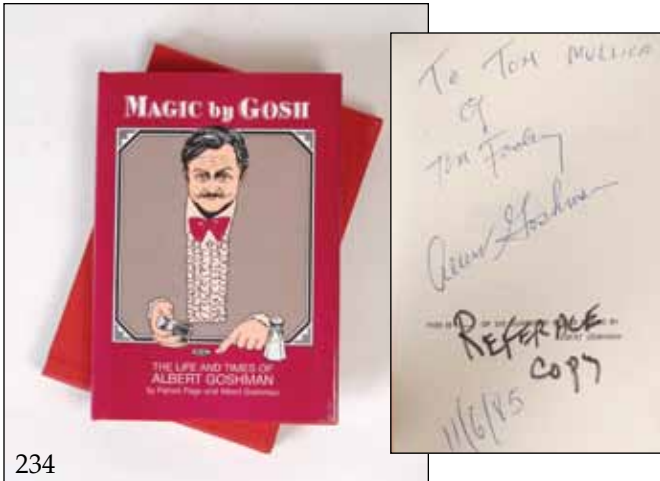 MAGIC by GOSH
THE LIFE AND TIMES OF
ALBERT GOSHMAN
by Patrick Page and Albert Goshman
234
To Tom MULLICA
of
TOM
Goshman
THIS IS OF BY
REFERACE
COPY
11/6/85